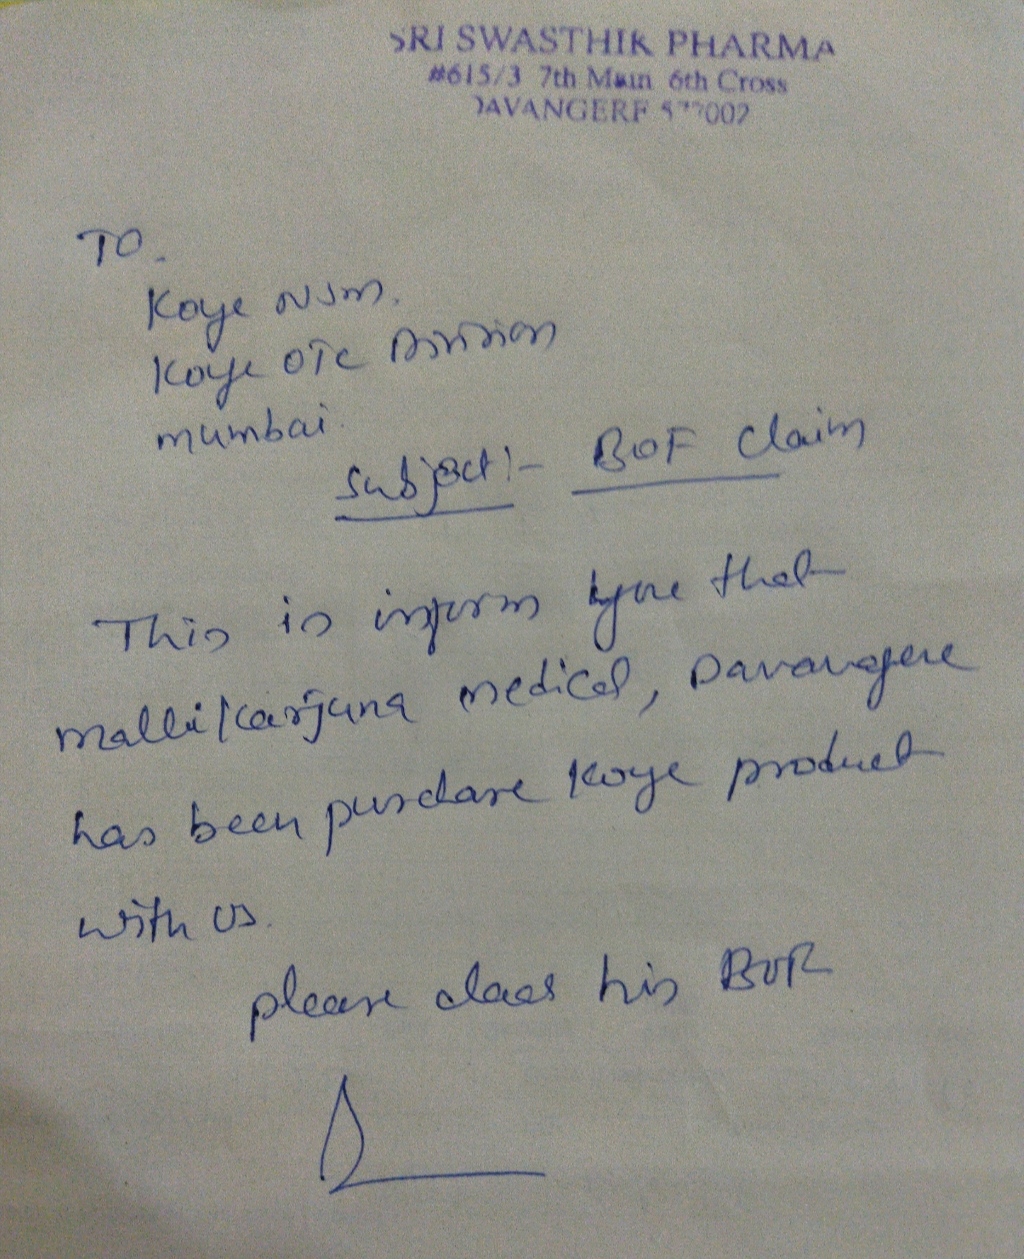 SRI SWASTHIK PHARMA
#615/3 7th Main 6th Cross
DAVANGERE 577002
TO.
Koye NSM.
Koye OTC Division
mumbai.
Subject:- BOF Claim
This is inform you that
mallikarjuna medical, Davanagere
has been purchase Koye product
with us.
please clear his BOF